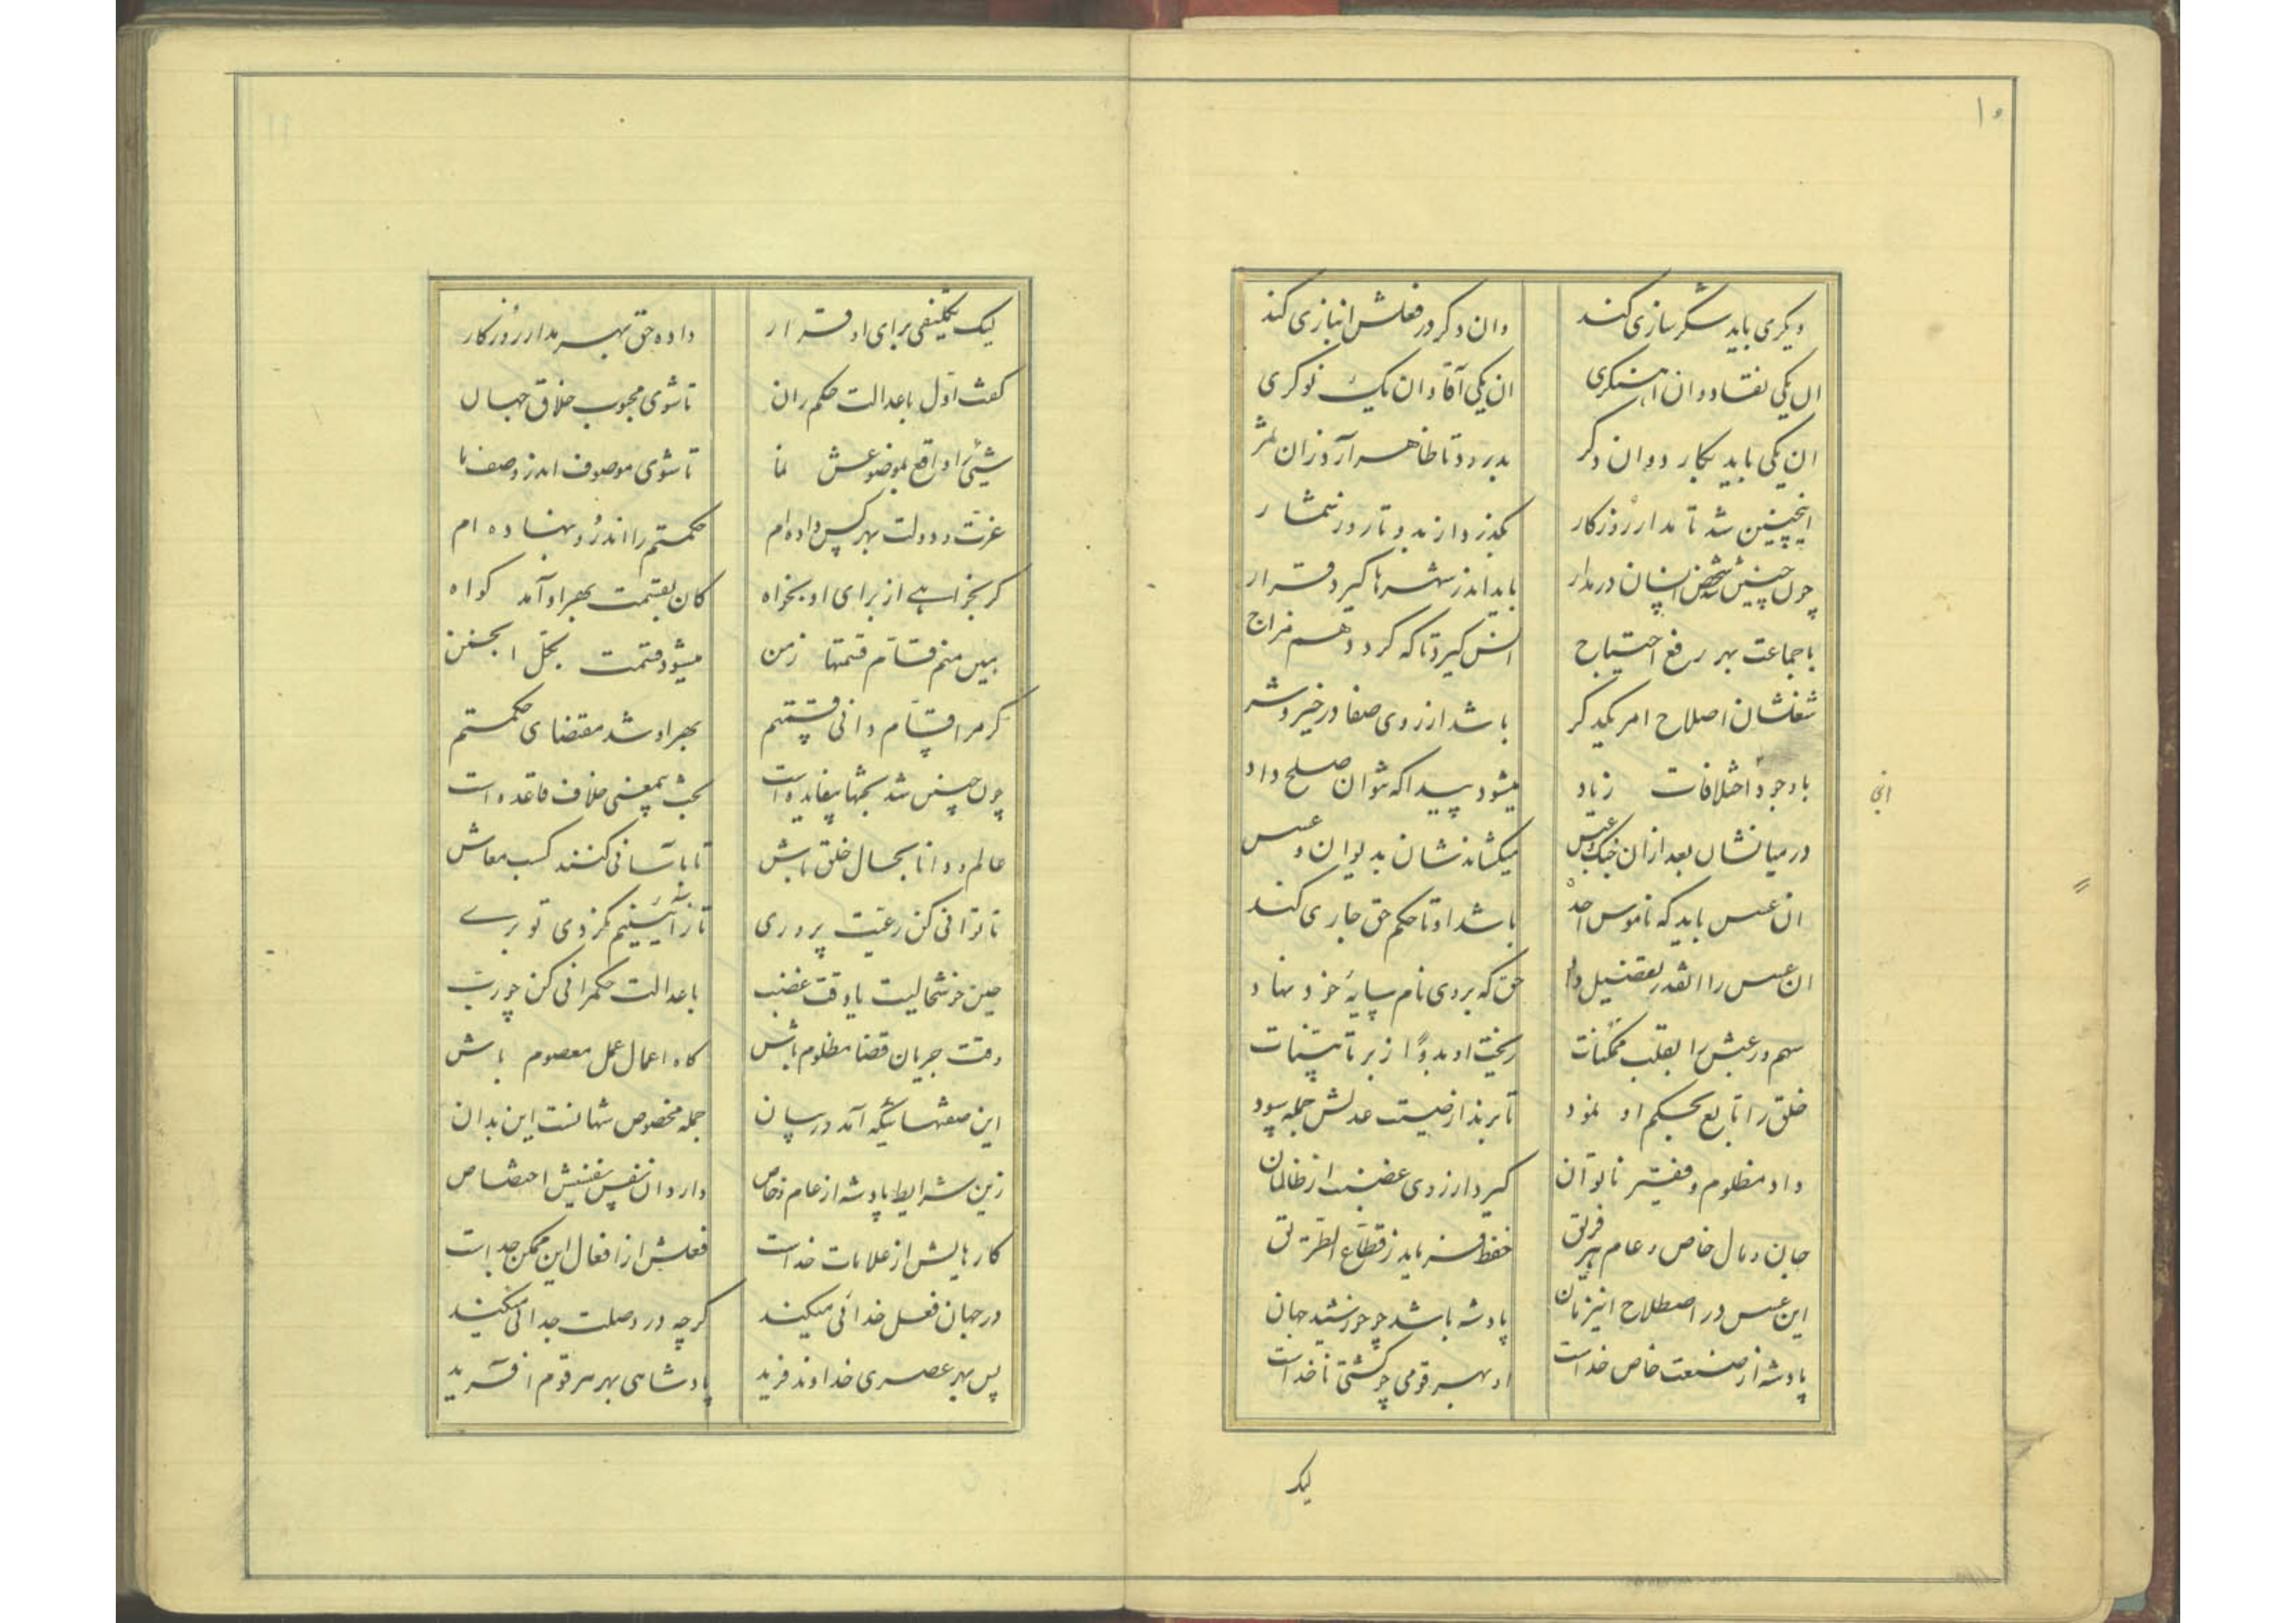 ۱۰
دیگری باید شکرسازی کند وان دگر در فعلش انبازی کند
ان یکی نقاد و ان اهنگری ان یکی آقا و ان یک نوکری
ان یکی باید بکارد وان دگر بدرود تا ظاهر آرد زان ثمر
اینچنین شد تا مدار روزگار بگذرد از بدو تا روز شمار
چون چنین شد شخص انسان در مدار باید اندر شهرها گیرد قرار
با جماعت بهر رفع احتیاج انس گیرد تا که گردد هم مزاج
شغلشان اصلاح امر یکدگر باشد از روی صفا در خیر و شر
باوجود اختلافات زیاد میشود پیدا که نتوان صلح داد
در میانشان بعد ازان جنک میکشاندشان بدیوان و عسس
ان عسس باید که ناموس احد باشد او تا حکم حق جاری کند
ان عسس را انقدر تفضیل داد حق که بر وی نام سایهٔ خود نهاد
سهم و رعبش را بقلب ممکنات ریخت او بدوًا ز بر تا
خلق را تابع بحکم او نمود تا برند از صیت عدلش جمله سود
داد مظلوم و فقیر ناتوان گیرد از روی غضب از ظالمان
جان و مال خاص و عام هر فریق حفظ فرماید ز قطاع الطریق
این عسس در اصطلاح این زمان پادشه باشد چو خورشید جهان
پادشه از صنعت خاص خداست او بهر قومی چو کشتی ناخداست
لیک
لیک تکلیفی برای او قرار داده حق بهر مدار روزگار
گفت اول باعدالت حکم ران تا شوی محبوب خلاق جهان
شیئی را واقع بموضوعش نما تا شوی موصوف اندر وصف ما
عزت و دولت بهر کس داده ام حکمتم را اندرو بنهاده ام
گر بخواهے از برای او بخواه کان بقسمت بهر او آمد گواه
بین منم قسّام قسمتها ز من میشود قسمت بکلّ انجمن
گر مرا قسّام دانی قسمتم بهر او شد مقتضای حکمتم
چون چنین شد بحثها بیفایده است بحث بیمعنی خلاف قاعده است
عالم و دانا بحال خلق باش تا باسانی کنند کسب معاش
تا توانی کن رعیت پروری تا ز آئینم نگردی تو برے
حین خوشحالیت یا وقت غضب باعدالت حکمرانی کن چو رب
وقت جریان قضا مظلوم باش گاه اعمال عمل معصوم باش
این صفتهائیکه آمد در بیان جمله مخصوص شهانست این بدان
زین شرایط پادشه از عام و خاص دارد ان نفس نفیسش اختصاص
کارهایش از علامات خداست فعلش از افعال این ممکن جداست
در جهان فعل خدائی میکند گرچه در وصلت جدائی میکند
پس بهر عصری خداوند فرید پادشاهی بهر هر قوم افرید